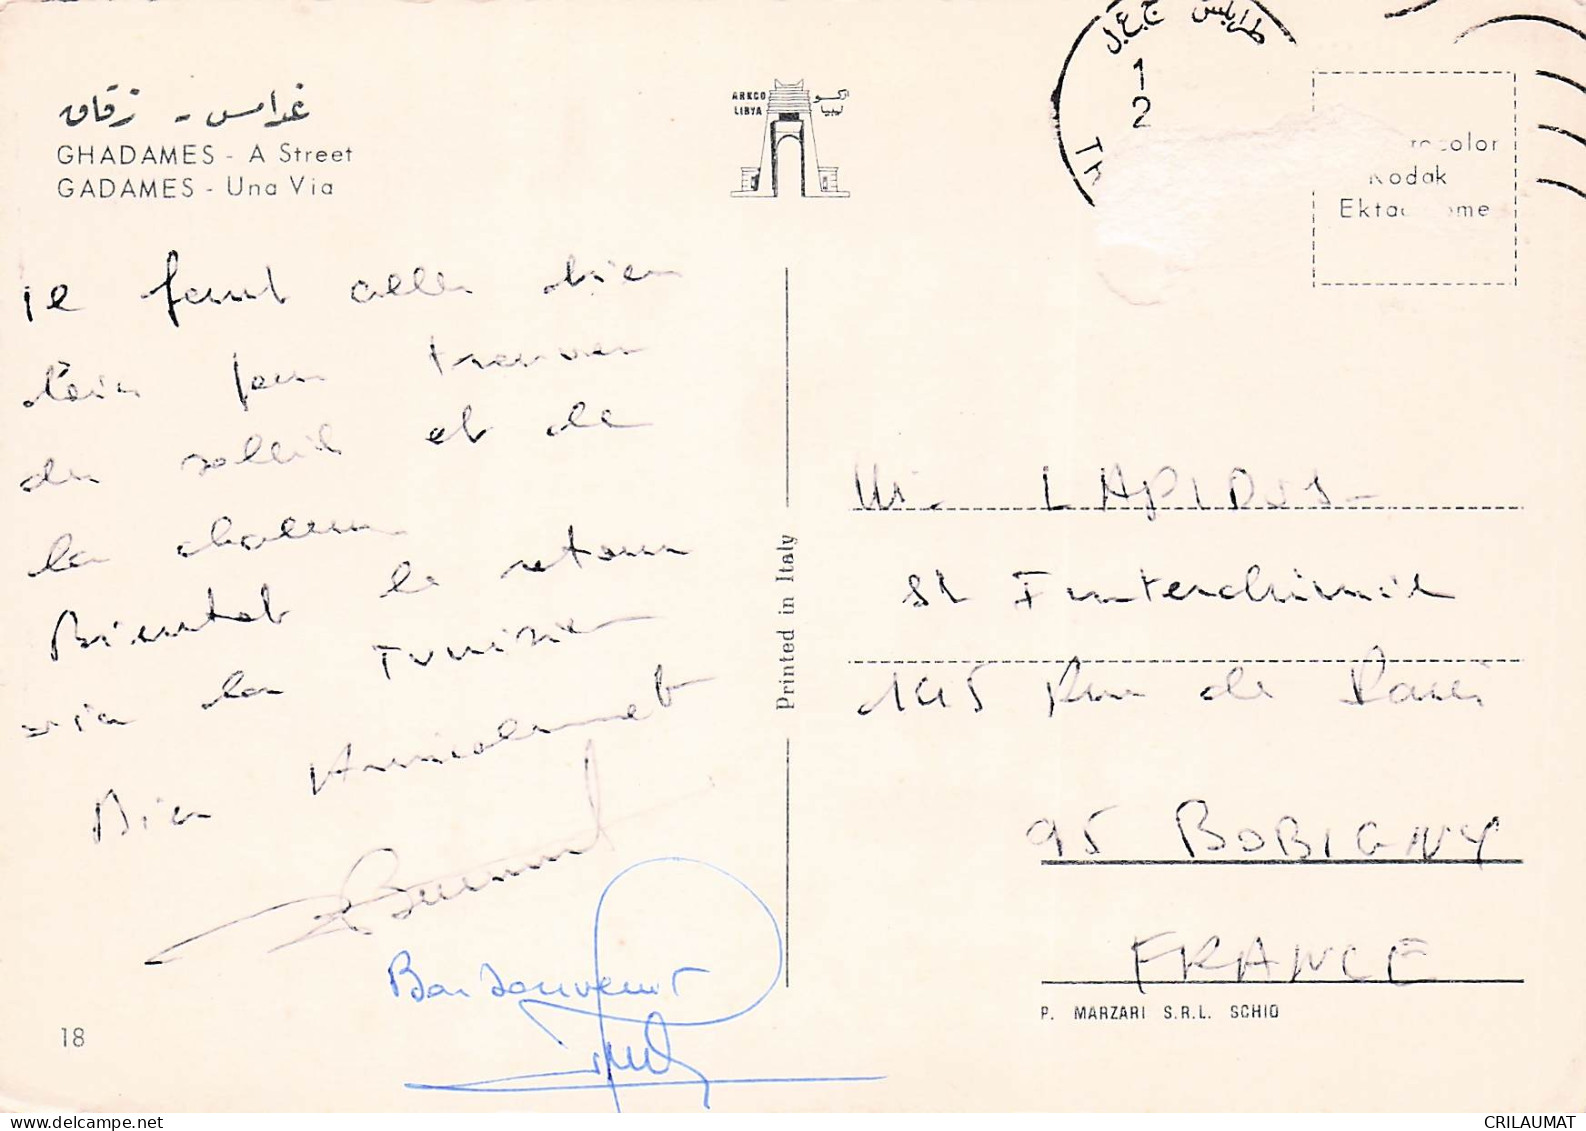 غدامس - زقاق
GHADAMES - A Street
GADAMES - Una Via
ARKCO
LIBYA
اركو
ليبيا
طرابلس ج.ع.ل
1
2
Kodak
il faut aller bien
loin pour trouver
du soleil et de
la chaleur
Bientot le retour
via la Tunisie
Bien Amicalement
Bon Souvenir
Printed in Italy
Mr LAPIDUS
145 Rue de Paris
95 BOBIGNY
FRANCE
P. MARZARI S.R.L. SCHIO
18
www.delcampe.net
CRILAUMAT